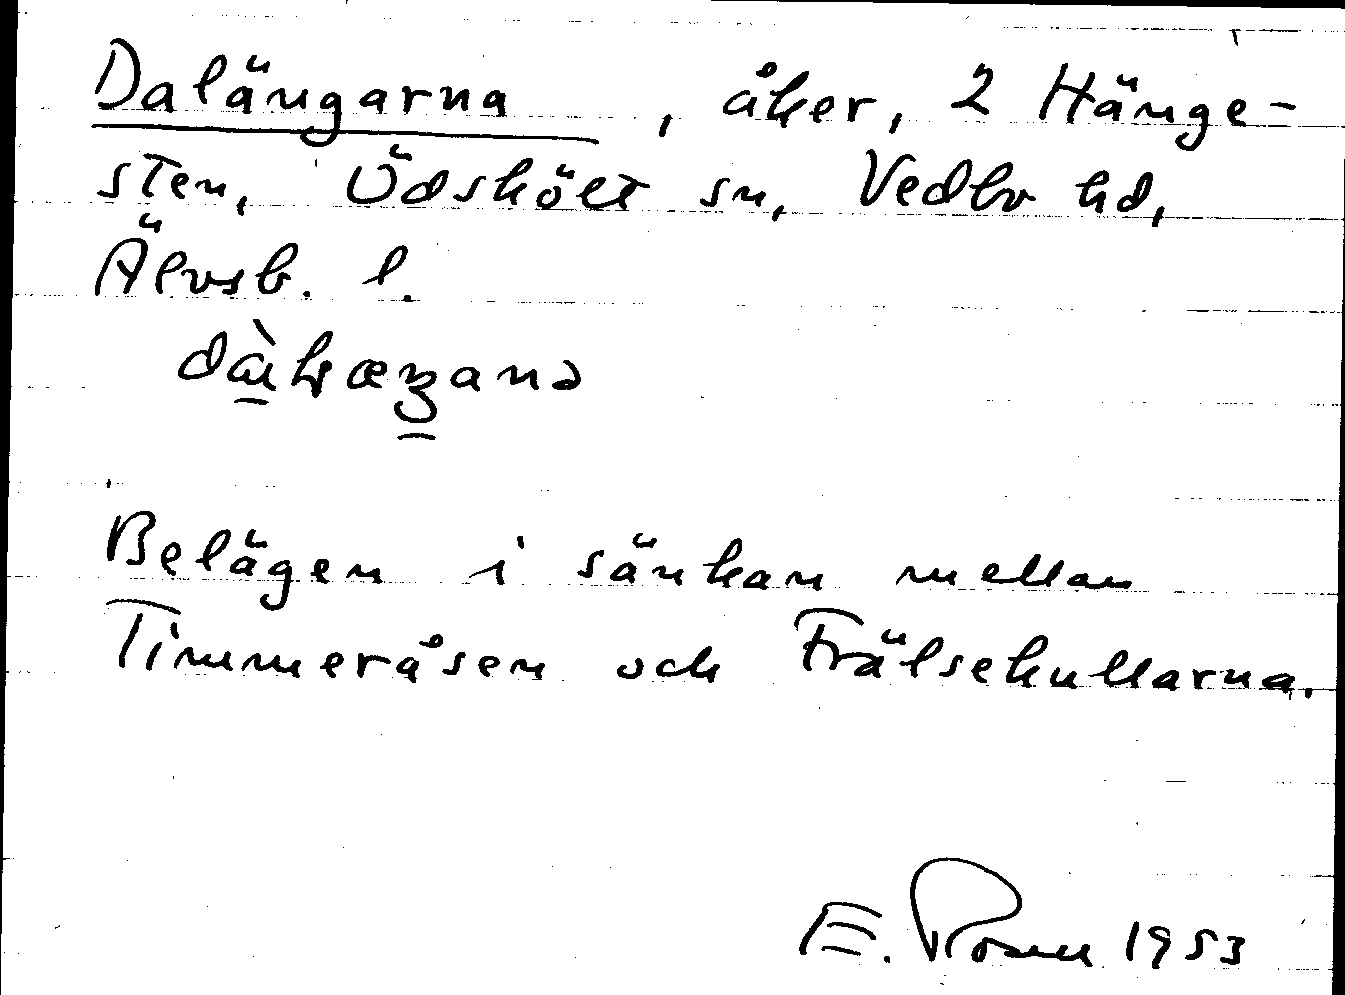 Dalängarna, åker, 2 Hänge-
sten, Ödskölt sn, Vedbo hd,
Älvsb. l.
Belägen i sänkan mellan
Timmeråsen och Frälsekullarna.
E. Rosen 1953